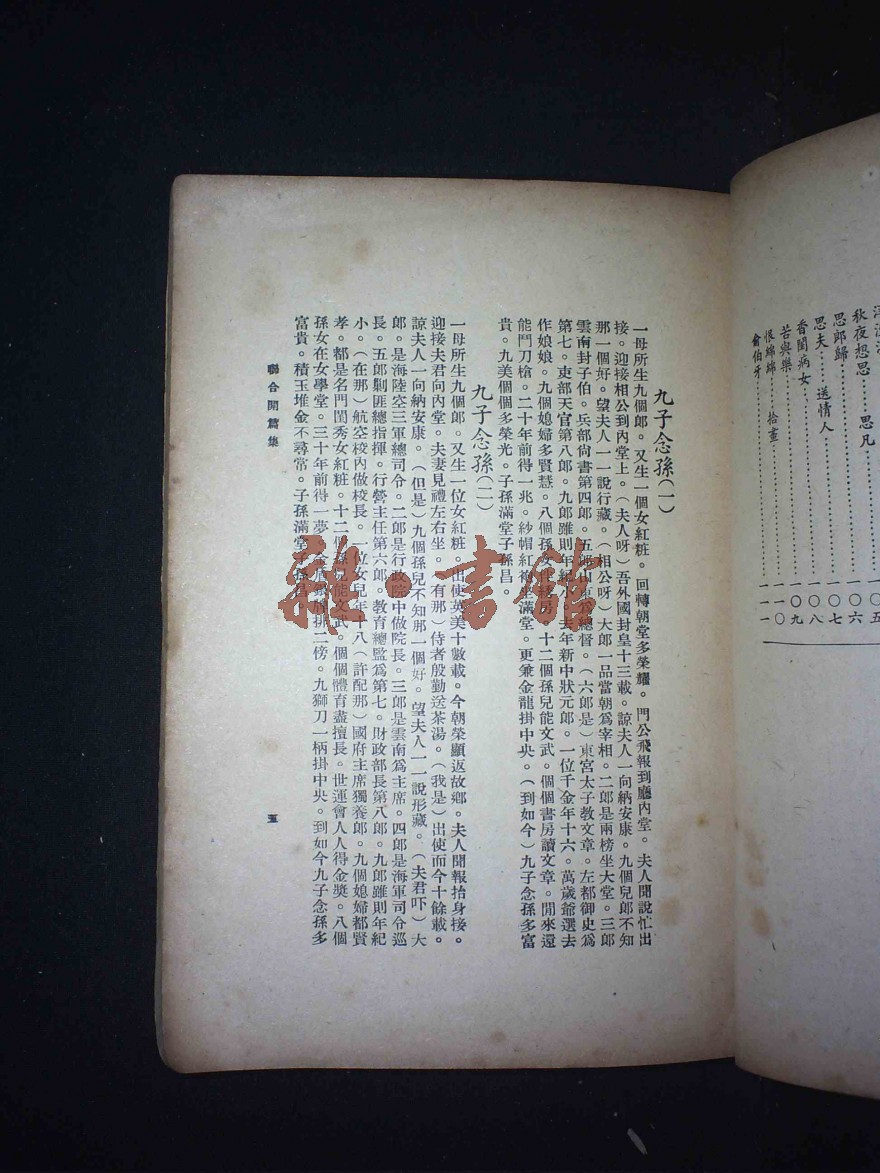 思凡
秋夜想思
思郎歸
思夫 送情人
香閨病女
苦與樂
恨綿綿 拾畫
俞伯牙
五
一〇六
一〇七
一〇八
一〇九
一一〇
一一一
九子念孫(一)
一母所生九個郎。又生一個女紅粧。回轉朝堂多榮耀。門公飛報到廳內堂。夫人聞說忙出
接。迎接相公到內堂上。(夫人呀)吾外國封皇十三載。諒夫人一向納安康。九個兒郎不知
那一個好。望夫人一一說行藏。(相公呀)大郎一品當朝爲宰相。二郎是兩榜坐大堂。三郎
雲南封子伯。兵部尙書第四郎。五郎山東爲總督。(六郎是)東宮太子教文章。左都御史爲
第七。吏部天官第八郎。九郎雖則年紀小。去年新中狀元郎。一位千金年十六。萬歲爺選去
作娘娘。九個媳婦多賢慧。八個孫女化綉房。十二個孫兒能文武。個個書房讀文章。閒來還
能鬥刀槍。二十年前得一兆。紗帽紅袍坐滿堂。更兼金龍掛中央。(到如今)九子念孫多富
貴。九美個個多榮光。子孫滿堂子孫昌。
九子念孫(二)
一母所生九個郎。又生一位女紅粧。出使英美十數載。今朝榮顯返故鄉。夫人聞報抬身接。
迎接夫君向內堂。夫妻見禮左右坐。(有那)侍者殷勤送茶湯。(我是)出使而今十餘載。
諒夫人一向納安康。(但是)九個孫兒不知那一個好。望夫人一一說形藏。(夫君吓)大
郎。是海陸空三軍總司令。二郎是行政院中做院長。三郎是雲南爲主席。四郎是海軍司令巡
長。五郎剿匪總指揮。行營主任第六郎。教育總監爲第七。財政部長第八郎。九郎雖則年紀
小。(在那)航空校內做校長。一位女兒年十八(許配那)國府主席獨養郎。九個媳婦都賢
孝。都是名門閨秀女紅粧。十二個孫兒能文武。個個體育盡擅長。世運會人人得金獎。八個
孫女在女學堂。三十年前得一夢。排二傍。九獅刀一柄掛中央。到如今九子念孫多
富貴。積玉堆金不尋常。子孫滿堂子孫昌。
聯合開篇集
五
雜書館